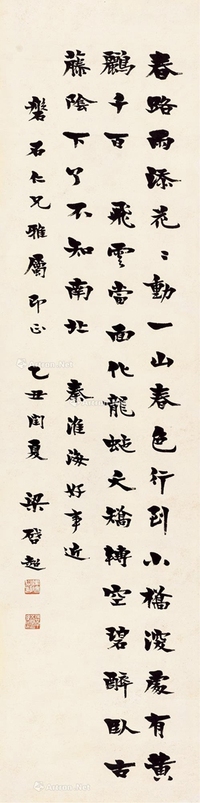 春路雨添花〻動一山春色行到小橋深處有黃
鸝千百 飛雲當面化龍蛇夭矯轉空碧醉臥古
藤陰下了不知南北 秦淮海好事近
磐石仁兄雅屬印正 乙丑閏夏 梁啓超